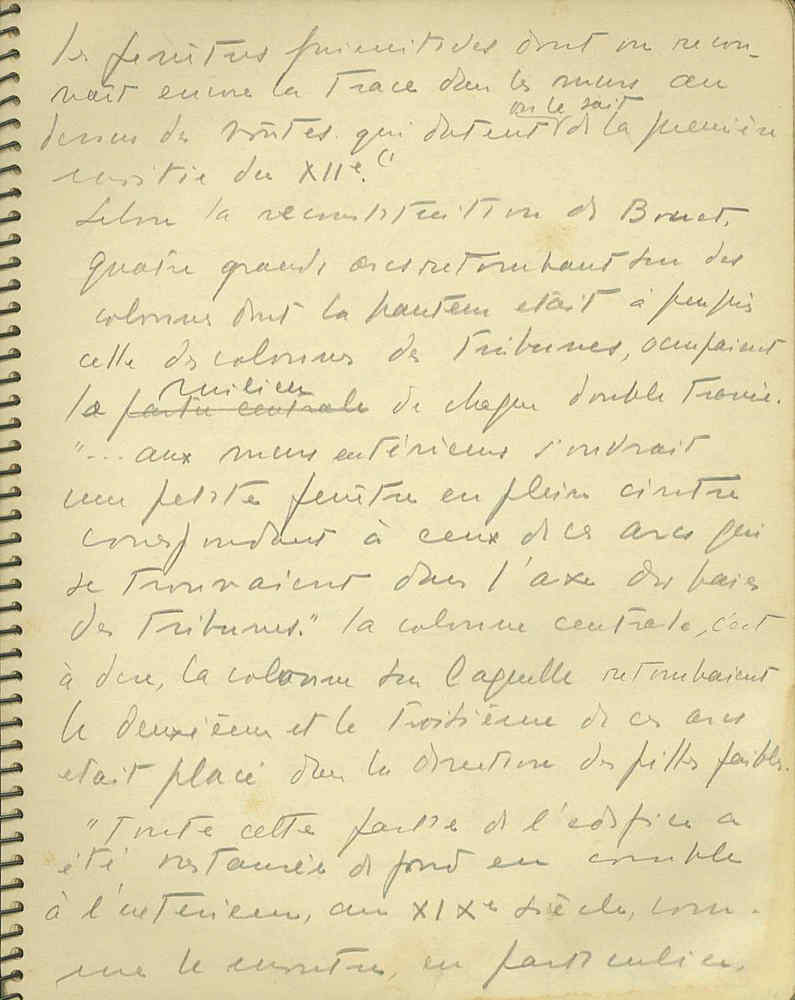 les fenêtres primitives dont on recon-
naît encore la trace dans les murs au
dessus des voûtes qui datent on le sait de la première
moitié du XIIe. (1
Selon la reconstitution de Bouet,
quatre grands arcs retombant sur des
colonnes dont la hauteur etait à peu près
celle des colonnes des tribunes, occupaient
le partie centrale milieu de chaque double travée.
"... aux murs extérieurs s'ouvrait
une petite fenêtre en plein cintre
correspondant à ceux de ces arcs qui
se trouvaient dans l'axe des baies
des tribunes." la colonne centrale, c'est
à dire, la colonne sur laquelle retombaient
le deuxième et le troisième de ces arcs
etait placé dans la direction des piles faibles.
"Toute cette partie de l'edifice a
été restaurée de fond en comble
à l'exterieur, au XIXe siècle, com-
me le montre, en particulier,